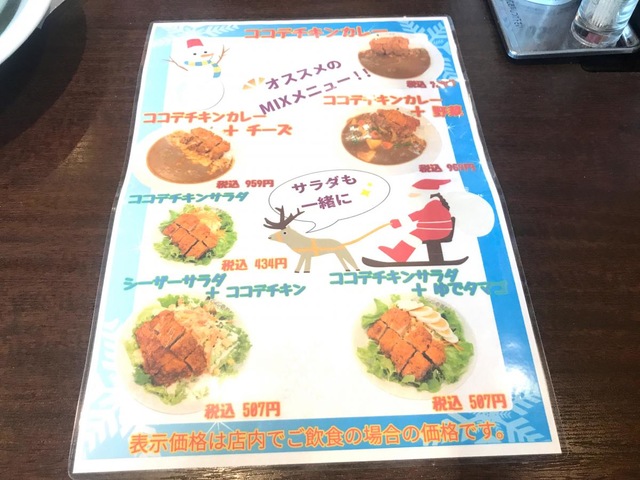 ココデチキンカレー
オススメの
MIXメニュー!!
税込
ココデチキンカレー
+ チーズ
ココデチキンカレー
+ 野菜
税込 959円
税込
サラダも
一緒に
ココデチキンサラダ
税込 434円
シーザーサラダ
+ ココデチキン
ココデチキンサラダ
+ ゆでタマゴ
税込 507円
税込 507円
表示価格は店内でご飲食の場合の価格です。